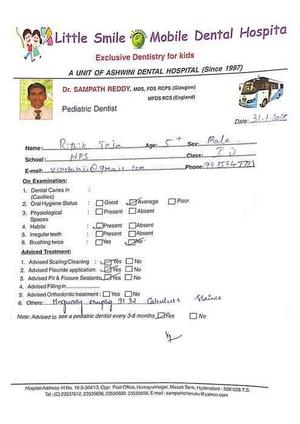 Little Smile Mobile Dental Hospita
Exclusive Dentistry for kids
A UNIT OF ASHWINI DENTAL HOSPITAL (Since 1997)
Dr. SAMPATH REDDY, MDS, FDS RCPS (Glasgow)
MFDS RCS (England)
Pediatric Dentist
Date:
Name: Rithik Teja Age: 5+ Sex: Male
School: HPS Class: I D
E-mail: @gmail.com Phone:
On Examination:
1. Dental Caries in :
(Cavities)
2. Oral Hygiene Status : Good Average Poor
3. Physiological : Present Absent
Spaces
4. Habits : Present Absent
5. Irregular teeth : Present Absent
6. Brushing twice : Yes No
Adviced Treatment:
1. Advised Scaling/Cleaning : Yes No
2. Advised Flouride application: Yes No
3. Advised Pit & Fissure Sealants: Yes No
4. Advised Filling in
5. Advised Orthodontic treatment: Yes No
6. Others: 31 32 Calculus Stains
Note: Advised to see a pediatric dentist every 3-6 months Yes No
Hospital Address: H.No. 10-3-304/13, Opp: Post Office, Humayunnagar, Masab Tank, Hyderabad - 500 028.T.S.
Tel: (C) 23537612, 23535656, 23590680, 23535658. E-mail : sampathcheruku@yahoo.com